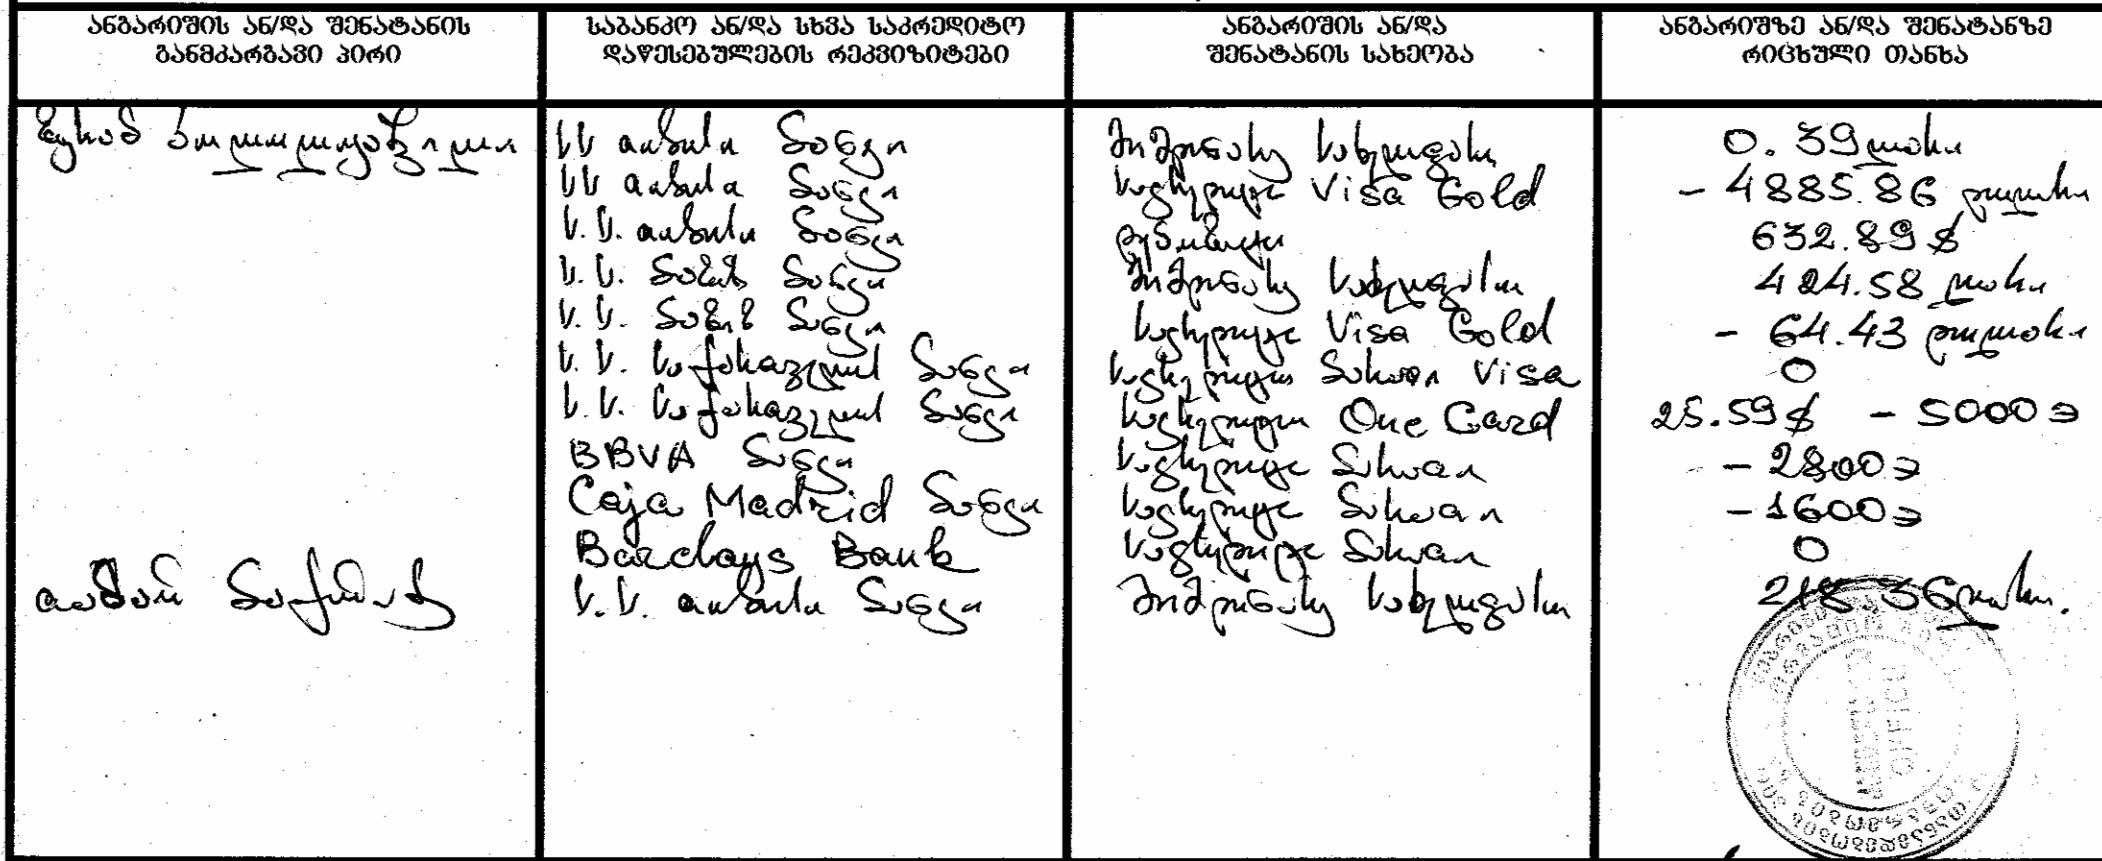 ანგარიშის ან/და შენატანის განმკარგავი პირი
საბანკო ან/და სხვა საკრედიტო დაწესებულების რეკვიზიტები
ანგარიშის ან/და შენატანის სახეობა
ანგარიშზე ან/და შენატანზე რიცხული თანხა
ს.ს. თიბისი ბანკი მიმდინარე სახელფასო 0.39 ლარი
ს.ს. თიბისი ბანკი საკრედიტო Visa Gold - 4885.86 დოლარი
ს.ს. თიბისი ბანკი დეპოზიტი 632.89 $
ს.ს. ბაზის ბანკი მიმდინარე სახელფასო 424.58 ლარი
ს.ს. ბაზის ბანკი საკრედიტო Visa Gold - 64.43 დოლარი
ს.ს. საქართველოს ბანკი საკრედიტო ბარათი Visa 0
ს.ს. საქართველოს ბანკი საკრედიტო One Card 25.59 $ - 5000
BBVA ბანკი საკრედიტო ბარათი - 2800
Caja Madrid ბანკი საკრედიტო ბარათი - 1600
Barclays Bank საკრედიტო ბარათი 0
ს.ს. თიბისი ბანკი მიმდინარე სახელფასო 218.36 ლარი.